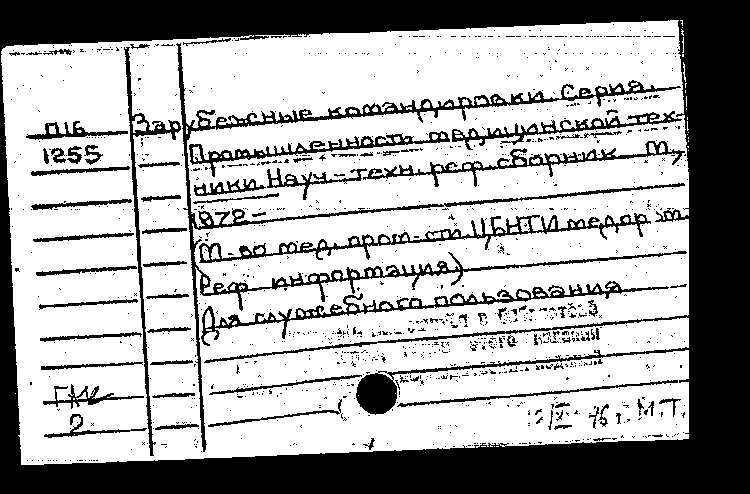 П16
1255
Зарубежные командировки. Серия.
Промышленность медицинской тех-
ники. Науч.-техн. реф. сборник. М.,
1972-
(М-во мед. пром-сти. ЦБНТИ медпром.
Реф. информация)
Для служебного пользования
в библиотеку
этого издания
76 г. М.Т.